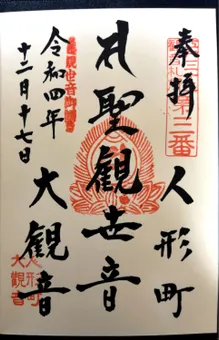 奉拝
第三番
人形町
聖観世音
大観音
令和四年
十二月十七日
人形町
大観音